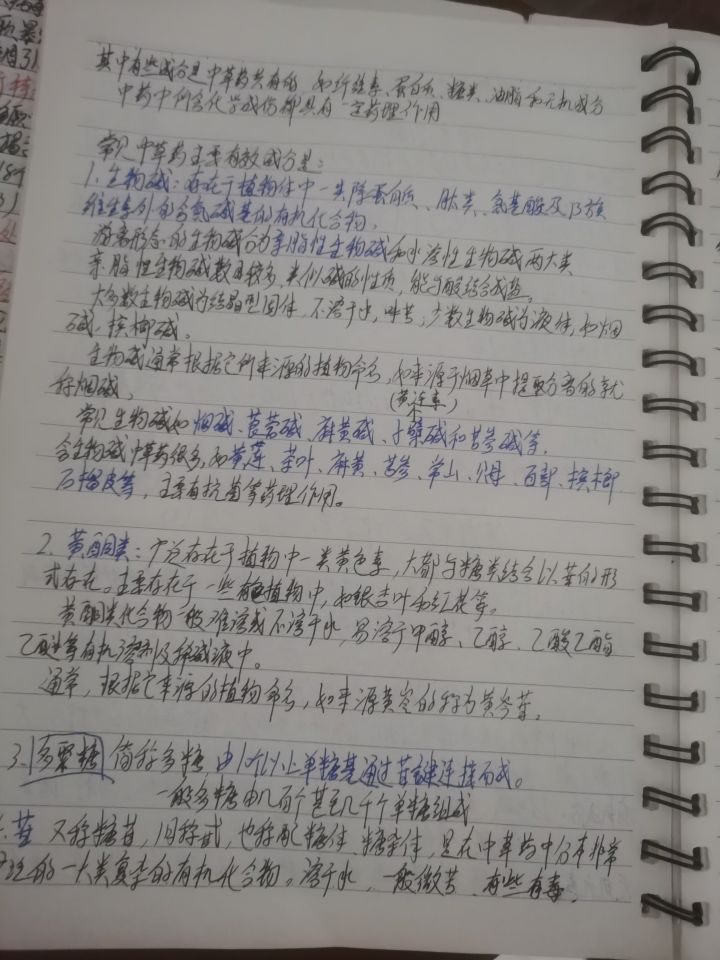 其中有些成分是中草药共有的，如纤维素、蛋白质、糖类、油脂和无机成分
中药中所含化学成份都具有一定药理作用
常见中草药主要有效成分是：
1. 生物碱：存在于植物体中一类除蛋白质、肽类、氨基酸及B族
维生素外的含氮碱基的有机化合物。
游离形态的生物碱分为亲脂性生物碱和水溶性生物碱两大类
亲脂性生物碱数目较多，类似碱的性质，能与酸结合成盐。
大多数生物碱为结晶型固体，不溶于水，味苦；少数生物碱为液体，如烟
碱、槟榔碱。
生物碱通常根据它所来源的植物命名，如来源于烟草中提取分离的就
称烟碱，
(黄连素)
常见生物碱如烟碱、莨菪碱、麻黄碱、小檗碱和苦参碱等，
含生物碱中草药很多，如黄莲、茶叶、麻黄、苦参、常山、贝母、百部、槟榔
石榴皮等，主要有抗菌等药理作用。
2. 黄酮类：广泛存在于植物中一类黄色素，大都与糖类结合以苷的形
式存在。主要存在于一些有色植物中，如银杏叶和红花等。
黄酮类化合物一般难溶或不溶于水，易溶于甲醇、乙醇、乙酸乙酯
乙醚等有机溶剂及稀碱液中。
通常，根据它来源的植物命名，如来源黄芩的称为黄芩苷。
3. 多聚糖 简称多糖 由10个以上单糖基通过苷键连接而成。
一般多糖由几百个甚至几千个单糖组成
苷 又称糖苷，旧称甙，也称配糖体、糖杂体，是在中草药中分布非常
的一大类复杂的有机化合物。溶于水，一般微苦、有些有毒，